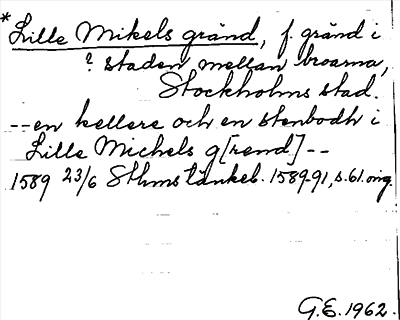 * Lille Mikels gränd, f. gränd i
? staden mellan broarna,
Stockholms stad.
-- en kellere och en stenbodh i
Lille Michels g[rend] --
1589 23/6 Sthms tänkeb. 1589-91, s. 61. orig.
G.E. 1962.